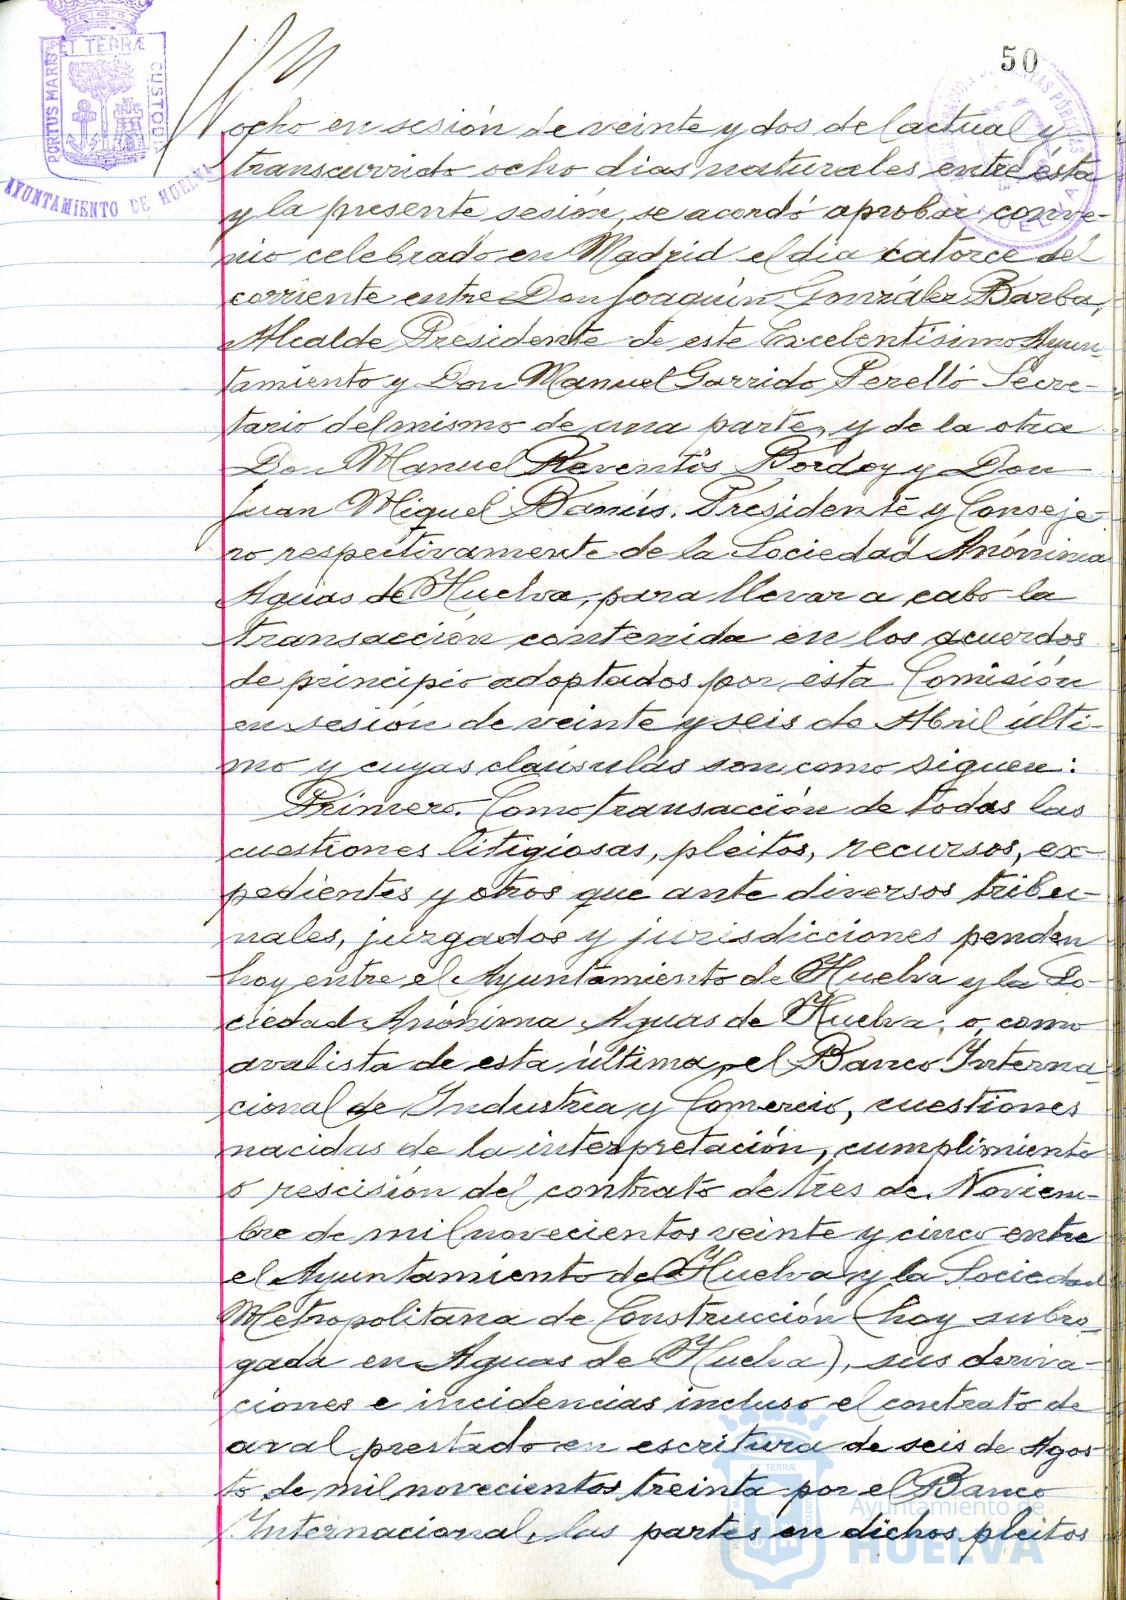 50
PORTUS MARIS ET TERRÆ CUSTODIA
AYUNTAMIENTO DE HUELVA
ocho en sesión de veinte y dos del actual y
transcurrido ocho dias naturales entre ésta
y la presente sesión, se acordó aprobar conve-
nio celebrado en Madrid el dia catorce del
corriente entre Don Joaquín González Barba,
Alcalde Presidente de este Excelentísimo Ayun-
tamiento y Don Manuel Garrido Perelló Secre-
tario del mismo de una parte, y de la otra
Don Manuel Reventós Bordoy y Don
Juan Miguel Banús. Presidente y Conseje-
ro respectivamente de la Sociedad Anónima
Aguas de Huelva, para llevar a cabo la
transacción contenida en los acuerdos
de principio adoptados por esta Comisión
en sesión de veinte y seis de Abril últi-
mo y cuyas cláusulas son como siguen:
Primero. Como transacción de todas las
cuestiones litigiosas, pleitos, recursos, ex-
pedientes y otros que ante diversos tribu-
nales, juzgados y jurisdicciones penden
hoy entre el Ayuntamiento de Huelva y la So-
ciedad Anónima Aguas de Huelva, o, como
avalista de esta última, el Banco Interna-
cional de Industria y Comercio, cuestiones
nacidas de la interpretación, cumplimiento
o rescisión del contrato de tres de Noviem-
bre de mil novecientos veinte y cinco entre
el Ayuntamiento de Huelva y la Sociedad
Metropolitana de Construcción (hoy subro-
gada en Aguas de Huelva), sus deriva-
ciones e incidencias incluso el contrato de
aval prestado en escritura de seis de Agos-
to de mil novecientos treinta por el Banco
Internacional, las partes en dichos pleitos
Ayuntamiento de
HUELVA